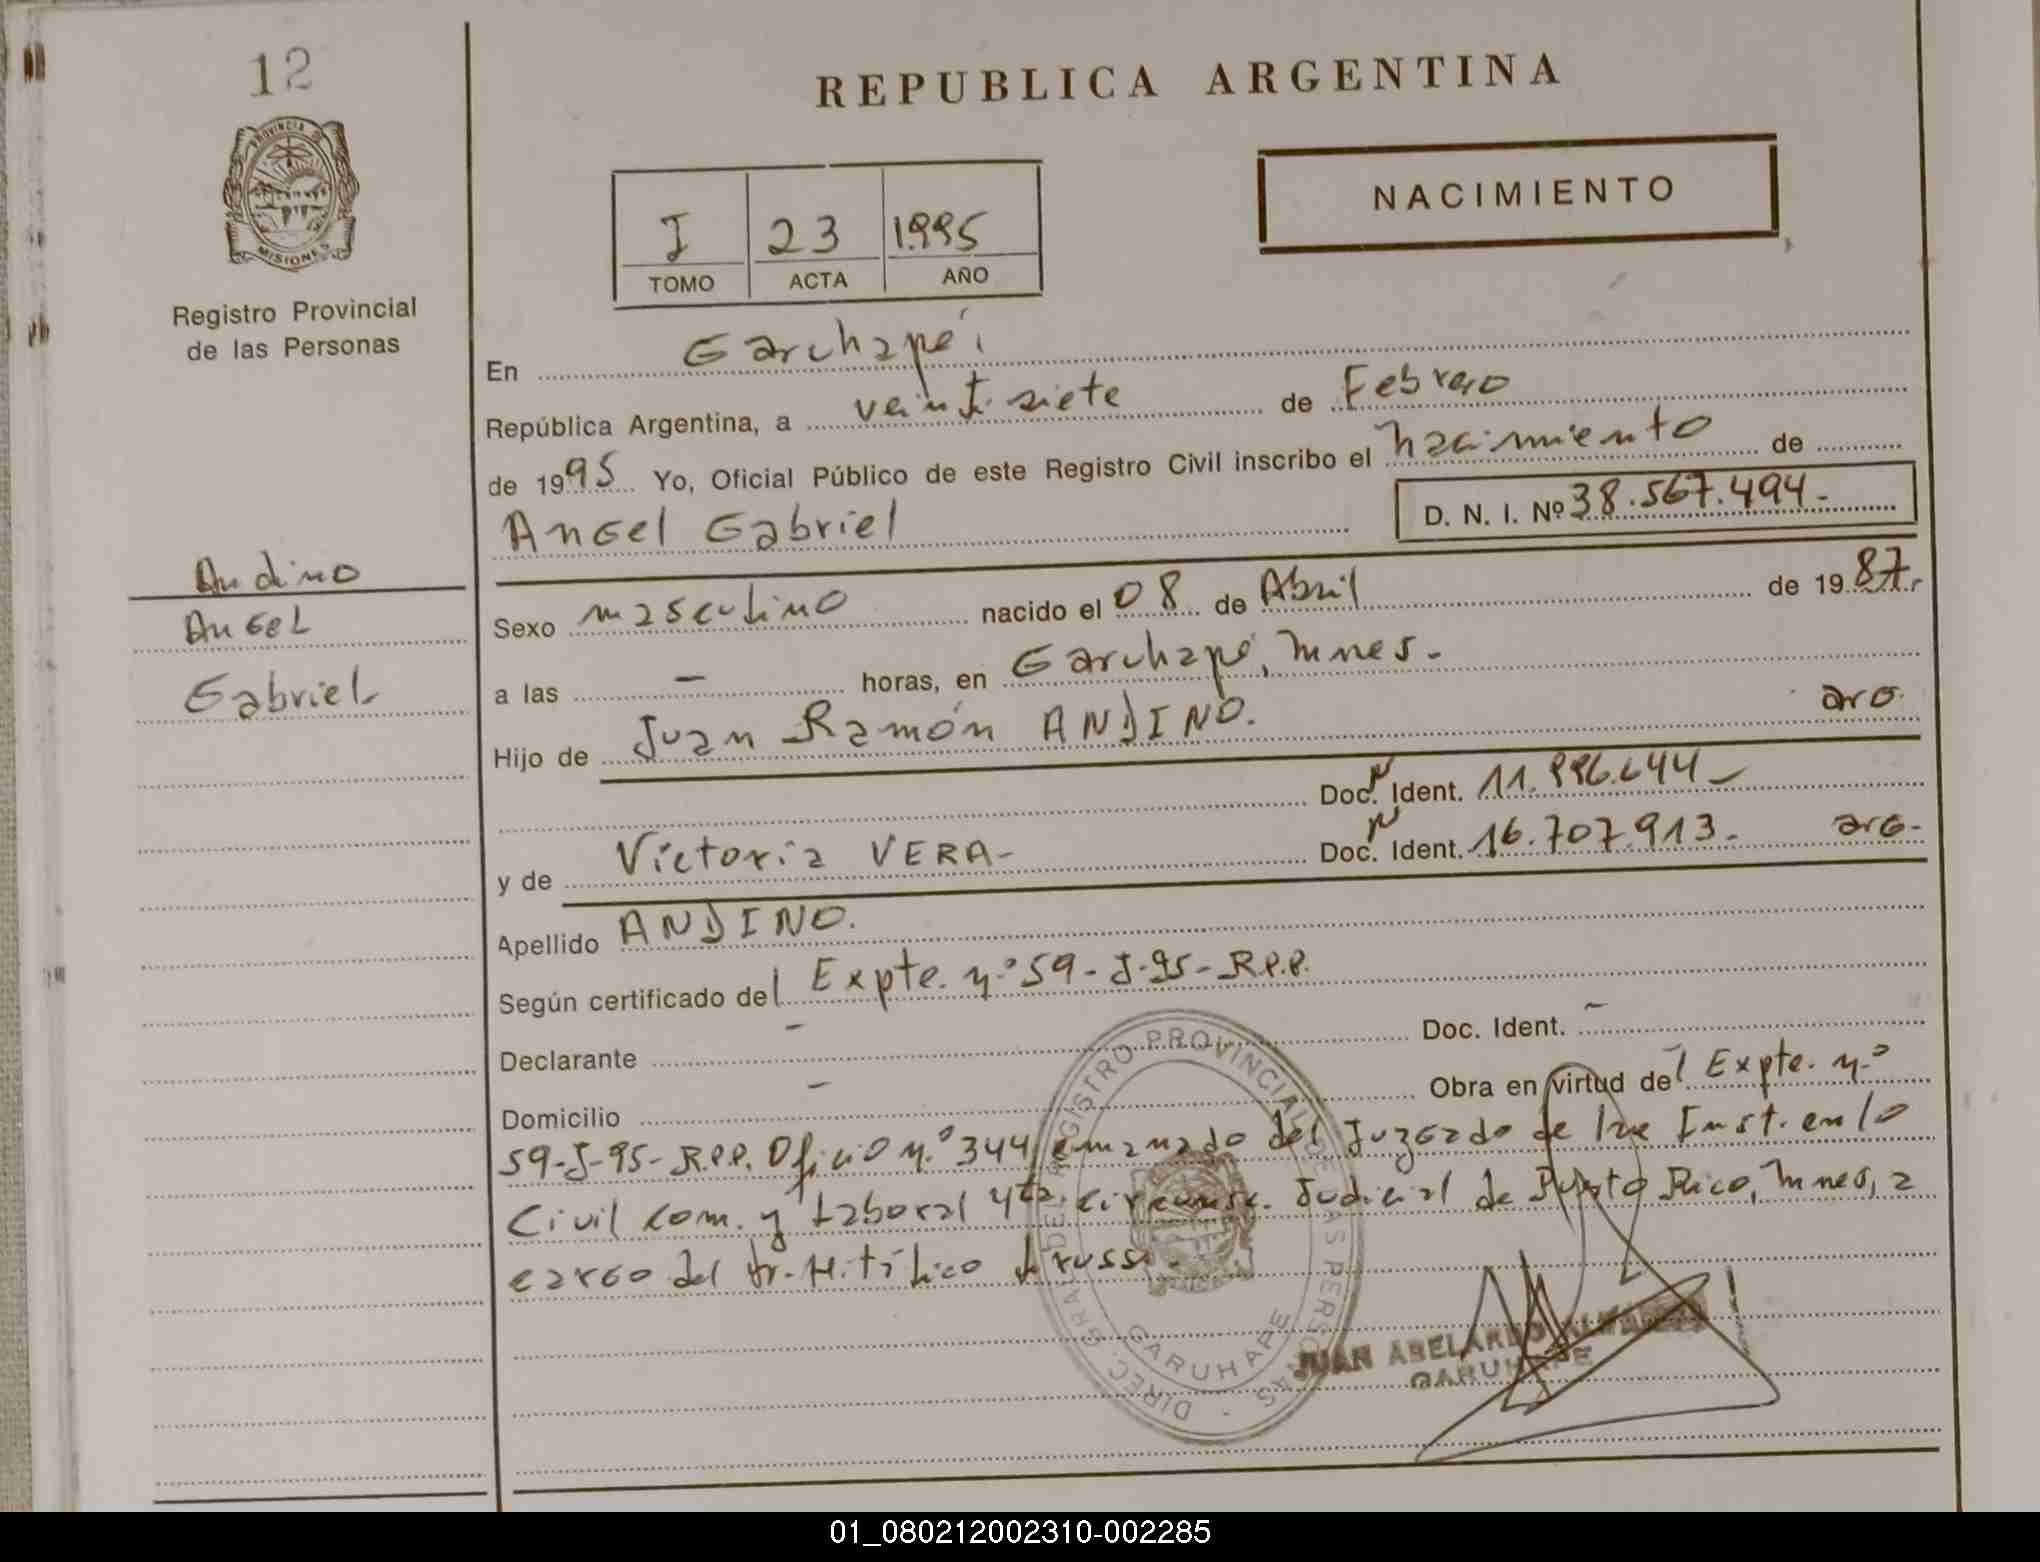 12
REPUBLICA ARGENTINA
PROVINCIA D
MISIONES
NACIMIENTO
I 23 1.995
TOMO ACTA AÑO
Registro Provincial
de las Personas
En Garuhapé,
República Argentina, a veintisiete de Febrero
de 1995 Yo, Oficial Público de este Registro Civil inscribo el nacimiento de
Angel Gabriel D. N. I. Nº 38.567.494.-
Andino
Angel
Gabriel
Sexo masculino nacido el 08 de Abril de 1987.
a las - horas, en Garuhapé, Mnes.-
Hijo de Juan Ramón ANDINO. arg.
Doc. Ident. 11.996.644-
y de Victoria VERA- Doc. Ident. 16.707.913.- arg.-
Apellido ANDINO.
Según certificado del Expte. nº 59-J-95-R.P.P.
Declarante - Doc. Ident. -
Domicilio - Obra en virtud del Expte. nº
59-J-95-R.P.P. Oficio nº 344 emanado del Juzgado de 1ra Inst. en lo
Civil Com. y Laboral 4ta. circunsc. Judicial de Puerto Rico, Mnes, a
cargo del Dr.
DIREC. GRAL. DEL REGISTRO PROVINCIAL DE LAS PERSONAS
GARUHAPE
JUAN ABELARDO
GARUHAPE
01_080212002310-002285